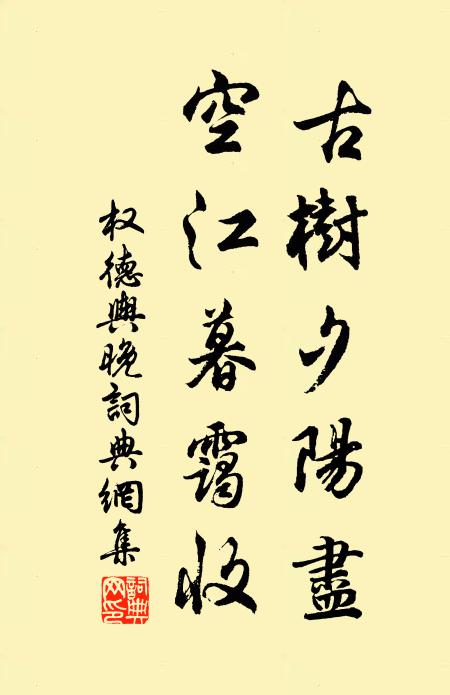 古樹夕陽盡
空江暮靄收
权德輿晚詞典網集
詞典
网印